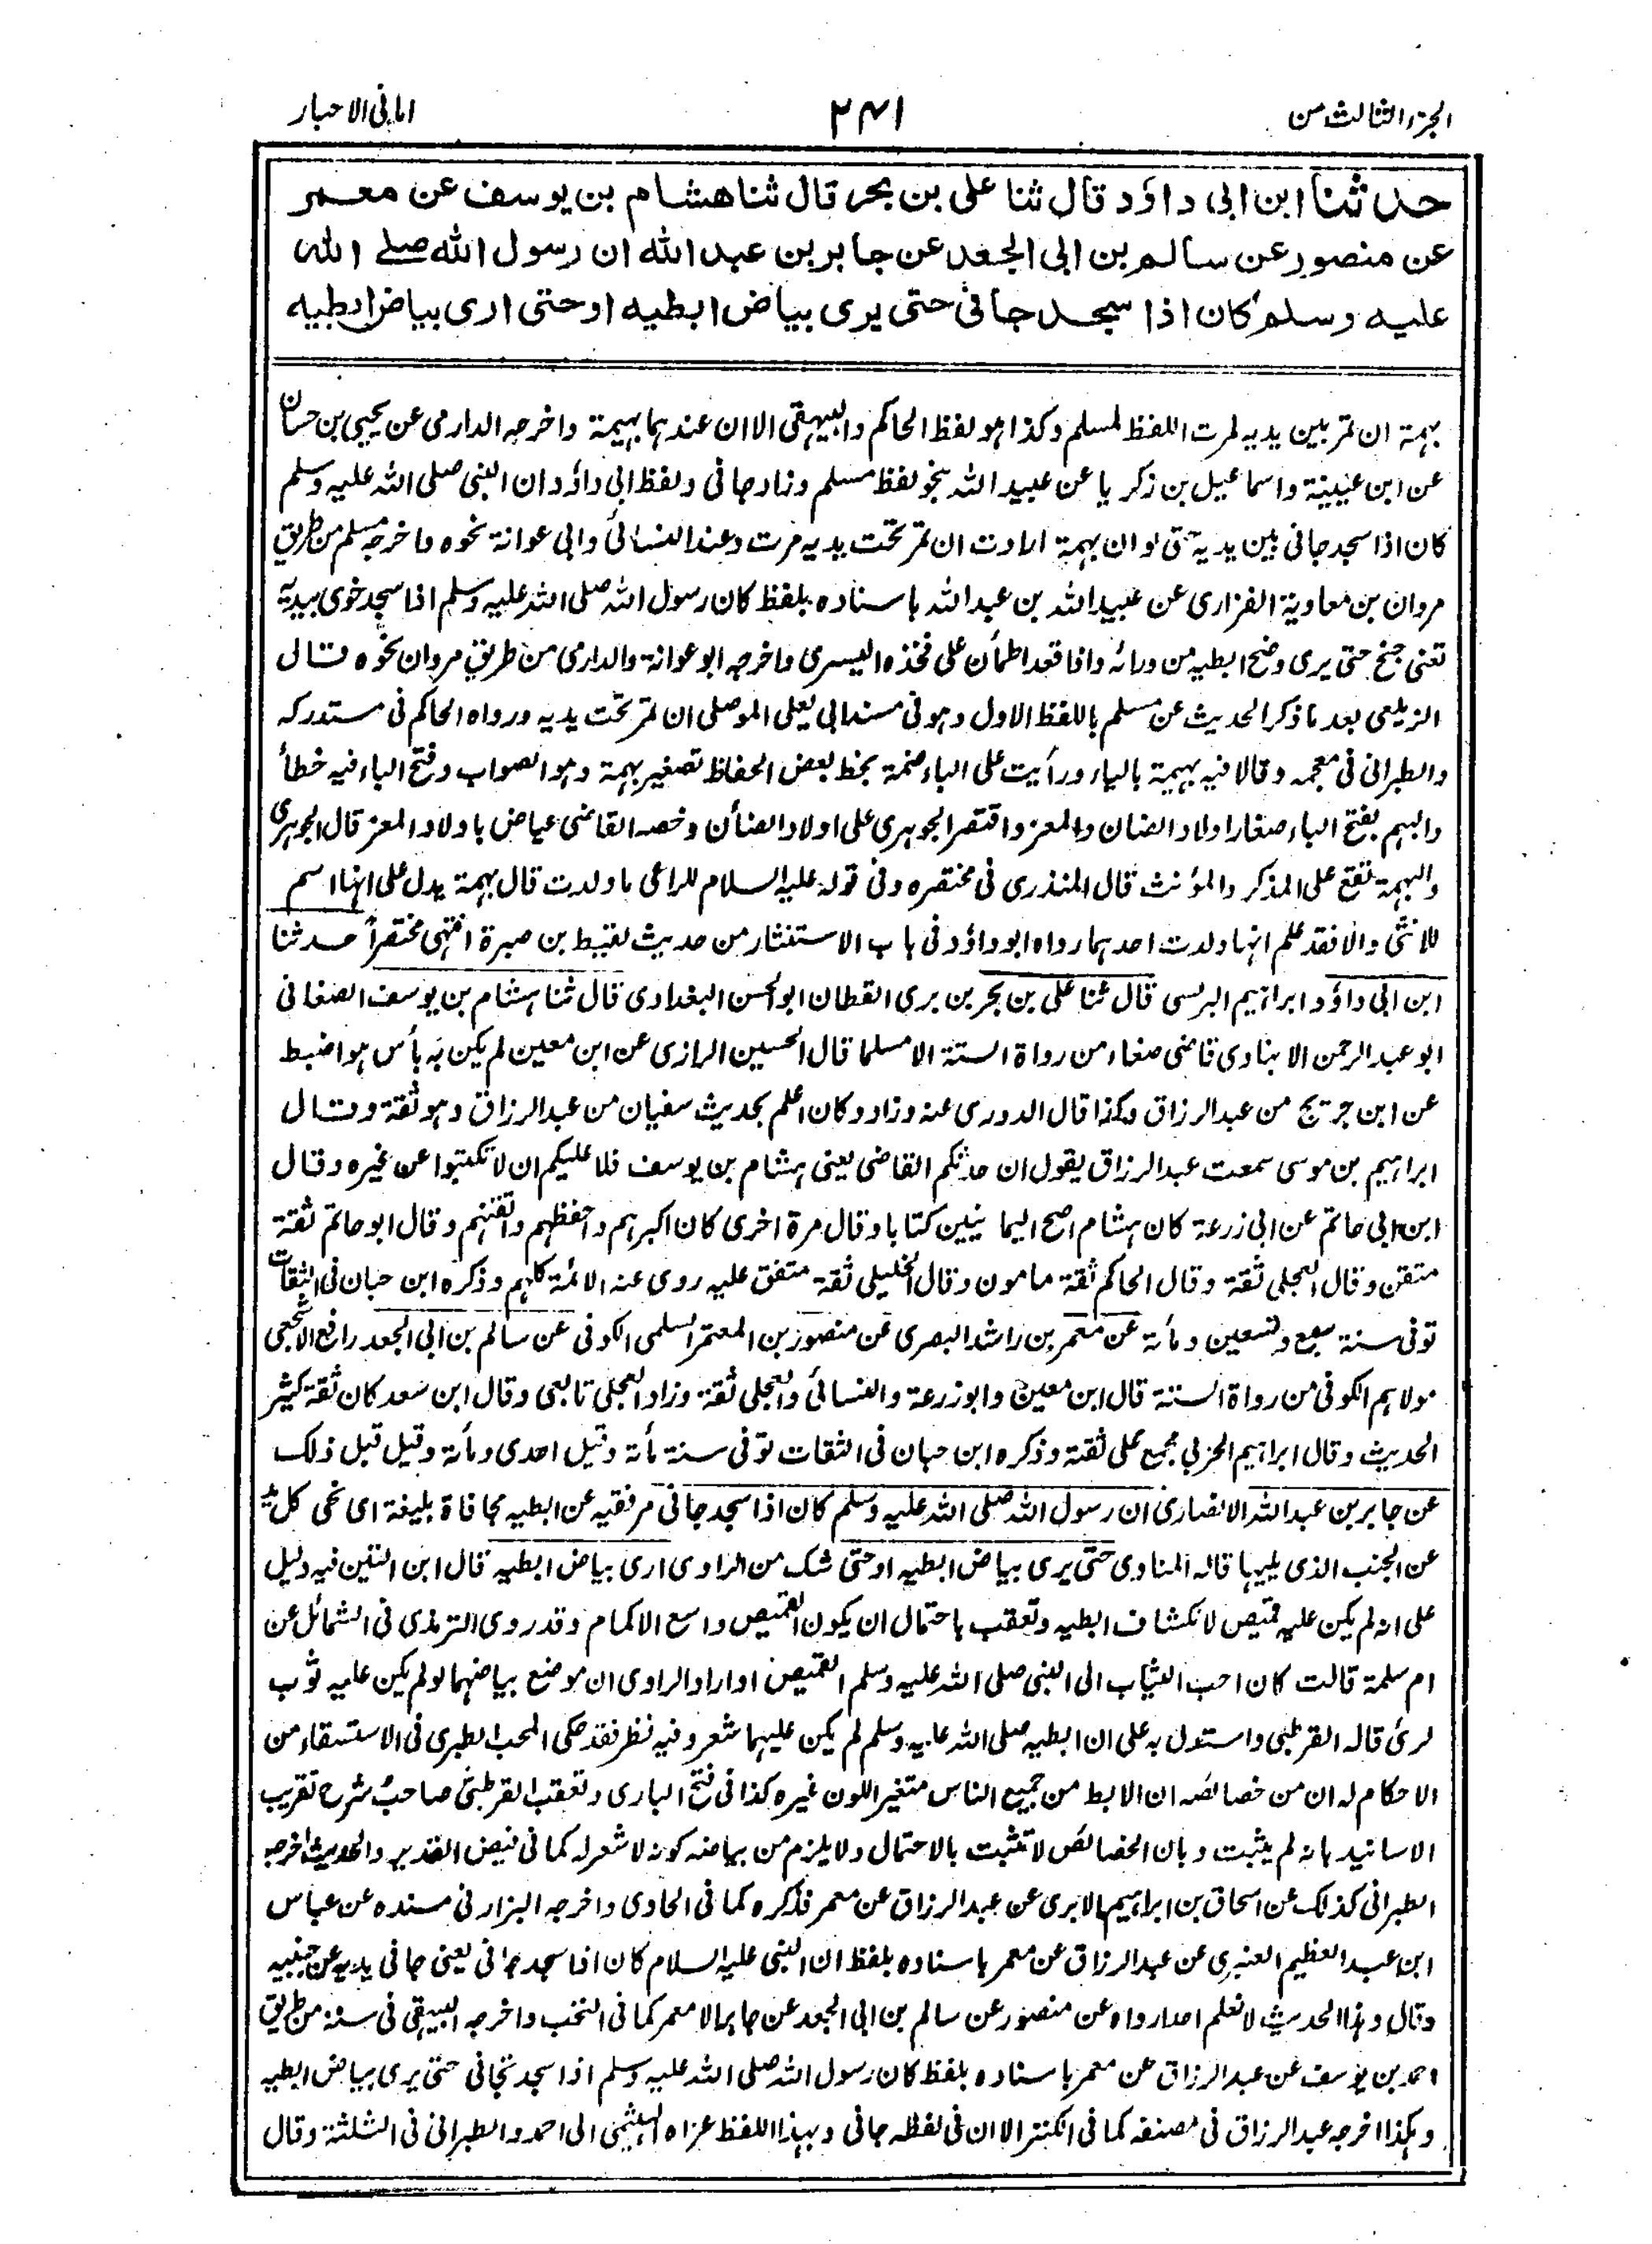 الجزء الثالث من
٢٤١
امانی الاحبار
حدثنا ابن ابی داؤد قال ثنا علی بن بحر قال ثنا هشام بن یوسف عن معمر
عن منصور عن سالم بن ابی الجعد عن جابر بن عبد الله ان رسول الله صلے الله
علیه وسلم کان اذا سجد جافی حتی یری بیاض ابطیه او حتی اری بیاض ابطیه
بہمة ان تمر بین یدیه لمرت اللفظ لمسلم وکذا ہو لفظ الحاکم والبیہقی الا ان عندہما بہیمة واخرجه الدارمی عن یحیی بن حسان
عن ابن عیینة واسماعیل بن زکریا عن عبید الله بنحو لفظ مسلم وزاد جافی ولفظ ابی داؤد ان النبی صلی الله علیه وسلم
کان اذا سجد جافی بین یدیه حتی لو ان بہمة ارادت ان تمر تحت یدیه مرت وعند النسائی وابی عوانة نحوه واخرجه مسلم من طریق
مروان بن معاویة الفزاری عن عبید الله بن عبد الله باسناده بلفظ کان رسول الله صلی الله علیه وسلم اذا سجد خوی بیدیه
تعنی جنح حتی یری وضح ابطیه من ورائه واذا قعد اطمأن علی فخذه الیسری واخرجه ابو عوانة والدارمی من طریق مروان نحوه قال
الزیلعی بعد ما ذکر الحدیث عن مسلم باللفظ الاول وہو فی مسند ابی یعلی الموصلی ان تمر تحت یدیه ورواه الحاکم فی مستدرکه
والطبرانی فی معجمه وقالا فیه بہیمة بالیاء ورأیت علی الباء ضمة بخط بعض الحفاظ تصغیر بہمة وہو الصواب وفتح الباء فیه خطأ
والبہم بفتح الباء صغار اولاد الضان والمعز واقتصر الجوہری علی اولاد الضأن وخصه القاضی عیاض باولاد المعز قال الجوہری
والبہمة تقع علی المذکر والمؤنث قال المنذری فی مختصره وفی قوله علیه السلام للراعی ما ولدت قال بہمة یدل علی انہا اسم
للانثی والا فقد علم انہا ولدت احدہما رواه ابو داؤد فی باب الاستنثار من حدیث لقیط بن صبرة انتہی مختصراً حدثنا
ابن ابی داؤد ابراہیم البرلسی قال ثنا علی بن بحر بن بری القطان ابو الحسن البغدادی قال ثنا ہشام بن یوسف الصنعانی
ابو عبد الرحمن الابناوی قاضی صنعاء من رواة الستة الا مسلما قال الحسین الرازی عن ابن معین لم یکن به بأس ہو اضبط
عن ابن جریج من عبد الرزاق وکذا قال الدوری عنه وزاد وکان اعلم بحدیث سفیان من عبد الرزاق وہو ثقة وقال
ابراہیم بن موسی سمعت عبد الرزاق یقول ان حدثکم القاضی یعنی ہشام بن یوسف فلا علیکم ان لا تکتبوا عن غیره وقال
ابن ابی حاتم عن ابی زرعة کان ہشام اصح الیمانیین کتابا وقال مرة اخری کان اکبرہم واحفظہم واتقنہم وقال ابو حاتم ثقة
متقن وقال العجلی ثقة وقال الحاکم ثقة مامون وقال الخلیلی ثقة متفق علیه روی عنه الائمة کلہم وذکره ابن حبان فی الثقات
توفی سنة سبع وتسعین ومأة عن معمر بن راشد البصری عن منصور بن المعتمر السلمی الکوفی عن سالم بن ابی الجعد رافع الاشجعی
مولاہم الکوفی من رواة الستة قال ابن معین وابو زرعة والنسائی والعجلی ثقة وزاد العجلی تابعی وقال ابن سعد کان ثقة کثیر
الحدیث وقال ابراہیم الحربی مجمع علی ثقته وذکره ابن حبان فی الثقات توفی سنة مأة وقیل احدی ومأة وقیل قبل ذلک
عن جابر بن عبد الله الانصاری ان رسول الله صلی الله علیه وسلم کان اذا سجد جافی مرفقیه عن ابطیه مجافاة بلیغة ای نحی کل ید
عن الجنب الذی یلیہا قاله المناوی حتی یری بیاض ابطیه او حتی شک من الراوی اری بیاض ابطیه قال ابن التین فیه دلیل
علی انه لم یکن علیه قمیص لانکشاف ابطیه وتعقب باحتمال ان یکون القمیص واسع الاکمام وقد روی الترمذی فی الشمائل عن
ام سلمة قالت کان احب الثیاب الی النبی صلی الله علیه وسلم القمیص او اراد الراوی ان موضع بیاضہما لو لم یکن علیه ثوب
لرئ قاله القرطبی واستدل به علی ان ابطیه صلی الله علیه وسلم لم یکن علیہما شعر وفیه نظر فقد حکی المحب الطبری فی الاستسقاء من
الاحکام له ان من خصائصه ان الابط من جمیع الناس متغیر اللون غیره کذا فی فتح الباری وتعقب القرطبی صاحب شرح تقریب
الاسانید بانه لم یثبت وبان الخصائص لا تثبت بالاحتمال ولا یلزم من بیاضه کونه لا شعر له کما فی فیض القدیر والحدیث اخرجه
الطبرانی کذلک عن اسحاق بن ابراہیم الدبری عن عبد الرزاق عن معمر فذکره کما فی الحاوی واخرجه البزار فی مسنده عن عباس
ابن عبد العظیم العنبری عن عبد الرزاق عن معمر باسناده بلفظ ان النبی علیه السلام کان اذا سجد جوافی یعنی جافی یدیه عن جنبیه
وقال وہذا الحدیث لا نعلم احدا رواه عن منصور عن سالم بن ابی الجعد عن جابر الا معمر کما فی النخب واخرجه البیہقی فی سننه من طریق
احمد بن یوسف عن عبد الرزاق عن معمر باسناده بلفظ کان رسول الله صلی الله علیه وسلم اذا سجد تجافی حتی یری بیاض ابطیه
وہکذا اخرجه عبد الرزاق فی مصنفه کما فی الکنز الا ان فی لفظه جافی وبہذا اللفظ عزاه الہیثمی الی احمد والطبرانی فی الثلثة وقال